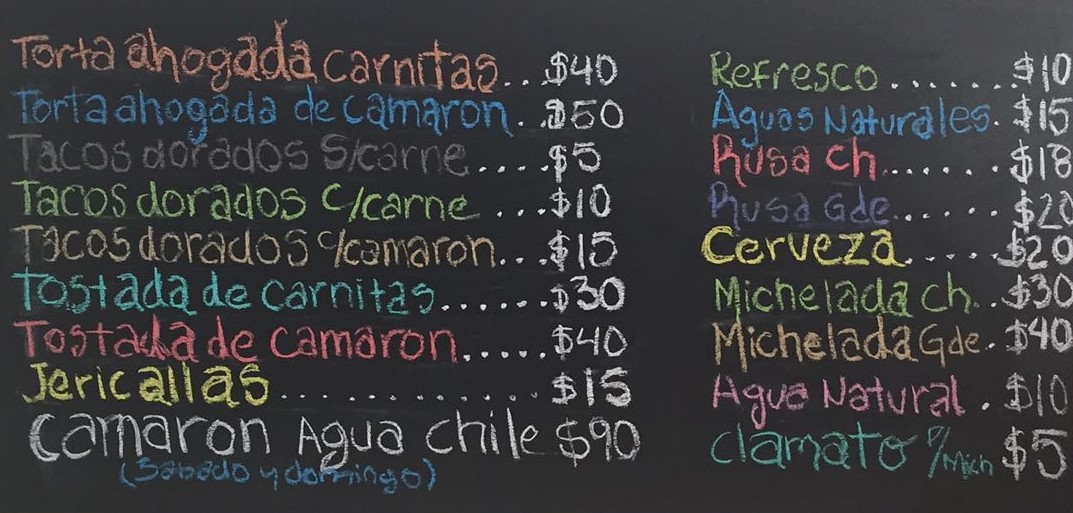 Torta ahogada carnitas...$40
Torta ahogada de camaron..$50
Tacos dorados S/carne....$5
Tacos dorados c/carne ....$10
Tacos dorados c/camaron...$15
Tostada de carnitas.......$30
Tostada de camaron.....$40
Jericallas............$15
Camaron Agua chile $90
(Sabado y domingo)
Refresco.......$10
Aguas Naturales.$15
Rusa ch......$18
Rusa Gde......$20
Cerveza.....$20
Michelada ch..$30
Michelada Gde.$40
Agua Natural .$10
clamato P/Mich $5